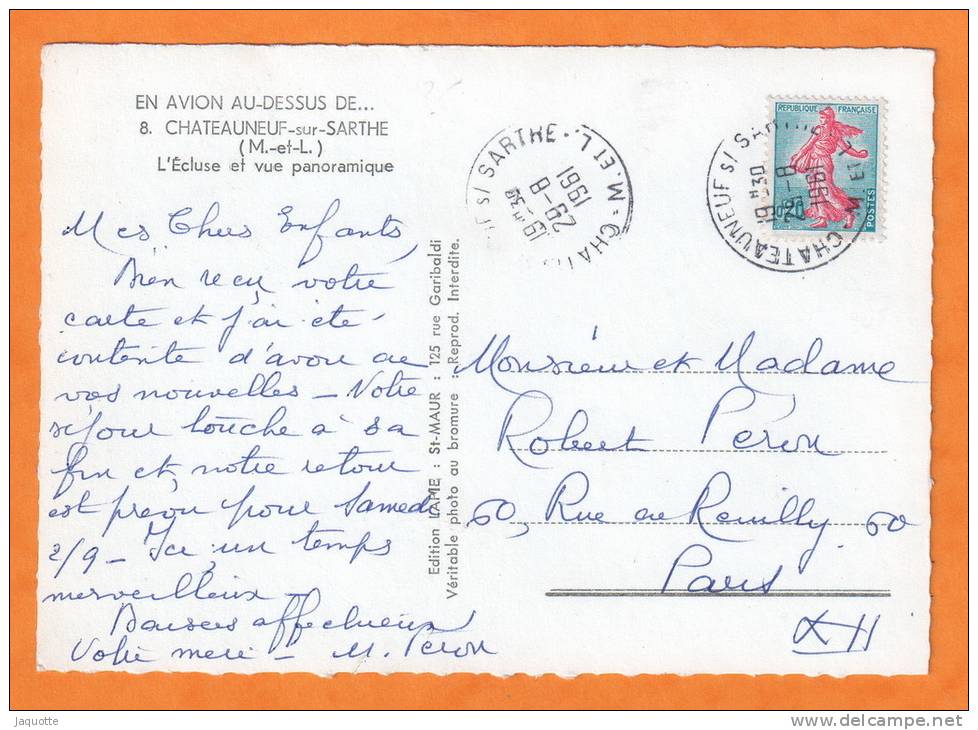 EN AVION AU-DESSUS DE...
8. CHATEAUNEUF-sur-SARTHE
(M.-et-L.)
L'Écluse et vue panoramique
Mes Chers Enfants,
Bien reçu votre
carte et j'ai été
contente d'avoir de
vos nouvelles - Votre
séjour touche à sa
fin et, notre retour
est prévu pour Samedi
2/9 - Ici un temps
merveilleux -
Baisers affectueux
Votre mère - M. Péron
Edition LAPIE : St-MAUR : 125 rue Garibaldi
Véritable photo au bromure :: Reprod. Interdite.
S/ SARTHE
M. ET L.
19 H 30
29-8
1961
REPUBLIQUE FRANÇAISE
0,20
POSTES
CHATEAUNEUF S/ SARTHE
M. ET L.
19 H 30
29-8
1961
Monsieur et Madame
Robert Péron
60, Rue de Reuilly, 60
Paris
XII
Jaquotte
www.delcampe.net